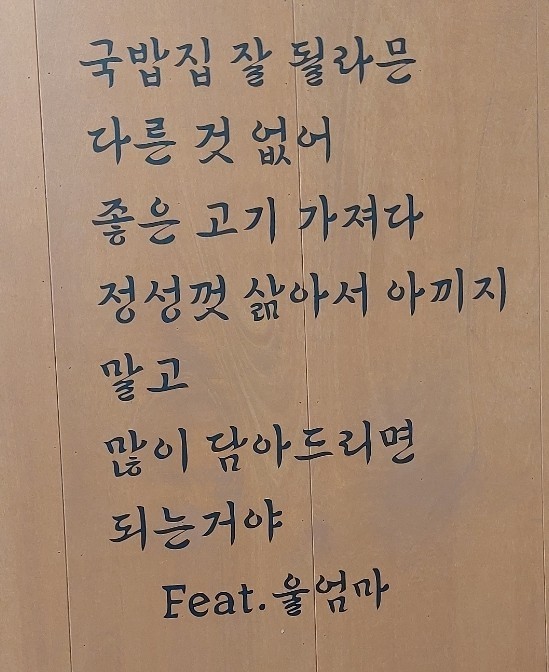 국밥집 잘 될라믄
다른 것 없어
좋은 고기 가져다
정성껏 삶아서 아끼지
말고
많이 담아드리면
되는거야
Feat.울엄마